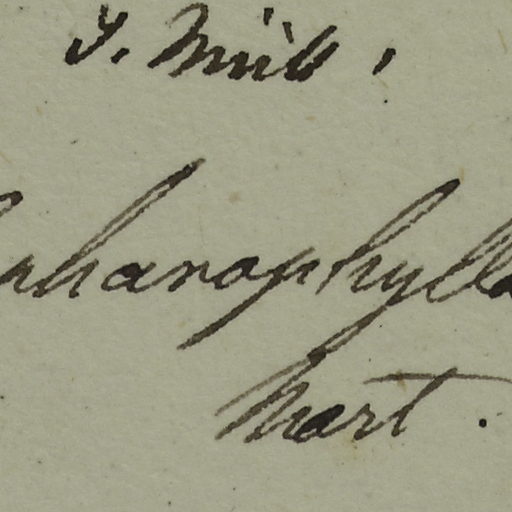 J. Müll.
phanophylla
Mart.